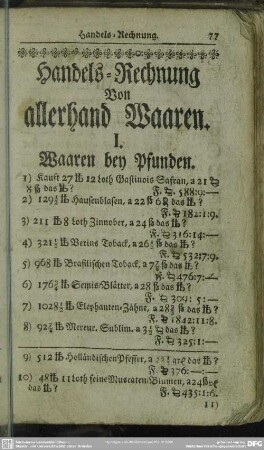 Handels-Rechnung. 77
Handels-Rechnung
Von
allerhand Waaren.
I.
Waaren bey Pfunden.
1) Kaufft 27 ℔ 12 Loth Gastinois Safran, a 21
8 ß das ℔? F. 588:9:—
2) Hausenblasen, a 22 ß das ℔?
F. 184:1:9.
3) 211 ℔ 8 Loth Zinnober, a 24 ß das ℔?
F. 316:14:—
4) 321 ℔ Verins Toback, a 26 ß das ℔?
F. 532:7:9.
5) 968 ℔ Brasilischen Toback, a 7 ß das ℔?
F. 476:7:—
6) 176 ℔ Senis-Blätter, a 28 ß das ℔?
F. 309:5:—
7) 1028 ℔ Elephanten-Zähne, a 28 ß das ℔?
F. 1842:11:8.
8) 92 ℔ Mercur. Sublim. a 3 das ℔?
F. 325:1:—
9) 512 ℔ Holländischen Pfeffer, a das ℔?
F. 376:—:—
10) 48 ℔ 11 Loth feine Muscaten-Blumen, a 24
das ℔? F. 435:1:6.
11)